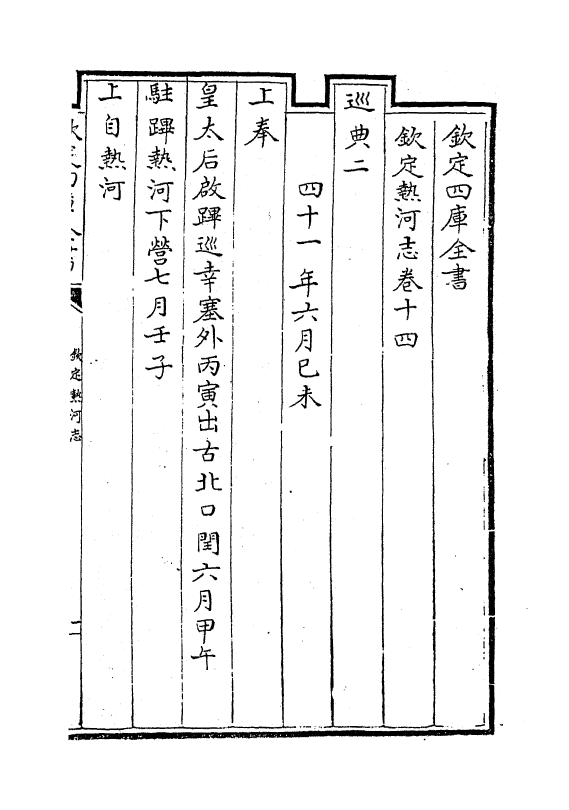 欽定四庫全書
欽定熱河志卷十四
巡典二
四十一年六月己未
上奉
皇太后啟蹕巡幸塞外丙寅出古北口閏六月甲午
駐蹕熱河下營七月壬子
上自熱河
欽定四庫全書
欽定熱河志
一